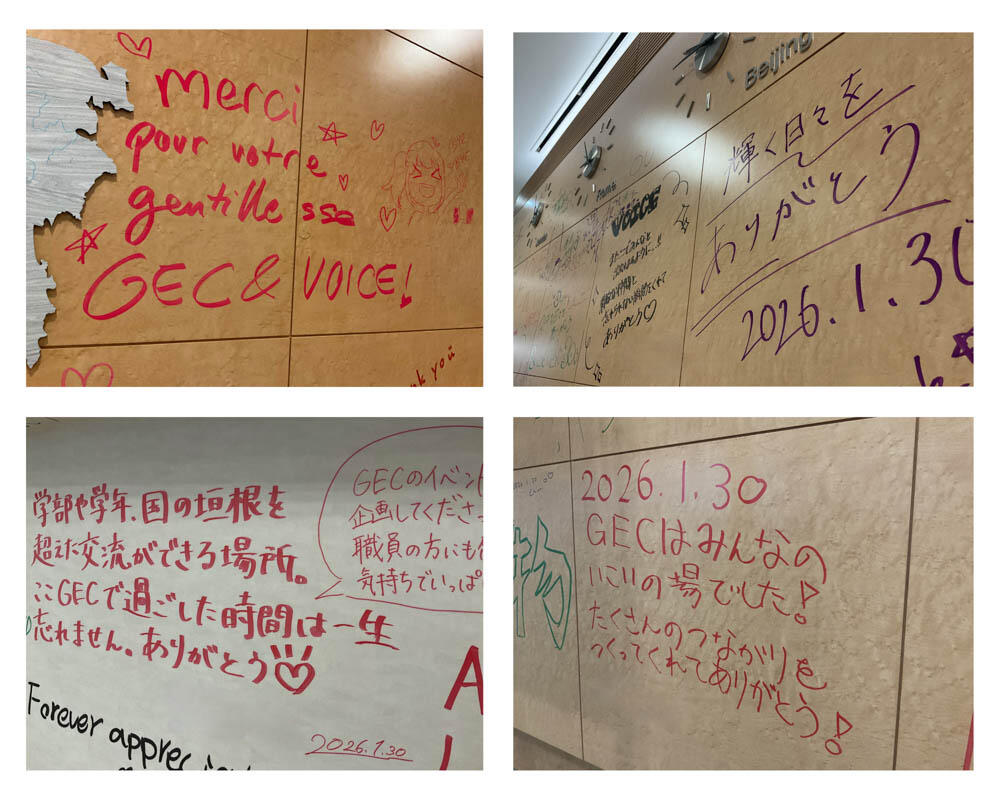 merci
pour votre
gentillesse
GEC & VOICE!
you
Beijing
輝く日々を
ありがとう
2026.1.30
VOICE
ありがとう♡
学部や学年、国の垣根を
超えた交流ができる場所。
ここGECで過ごした時間は一生
忘れません。ありがとう♡
2026.1.30
GECのイベント
企画してくださっ
職員の方にも
気持ちでいっぱ
Forever appreciat
A
2026.1.30
GECはみんなの
いこいの場でした!
たくさんのつながりを
つくってくれてありがとう!